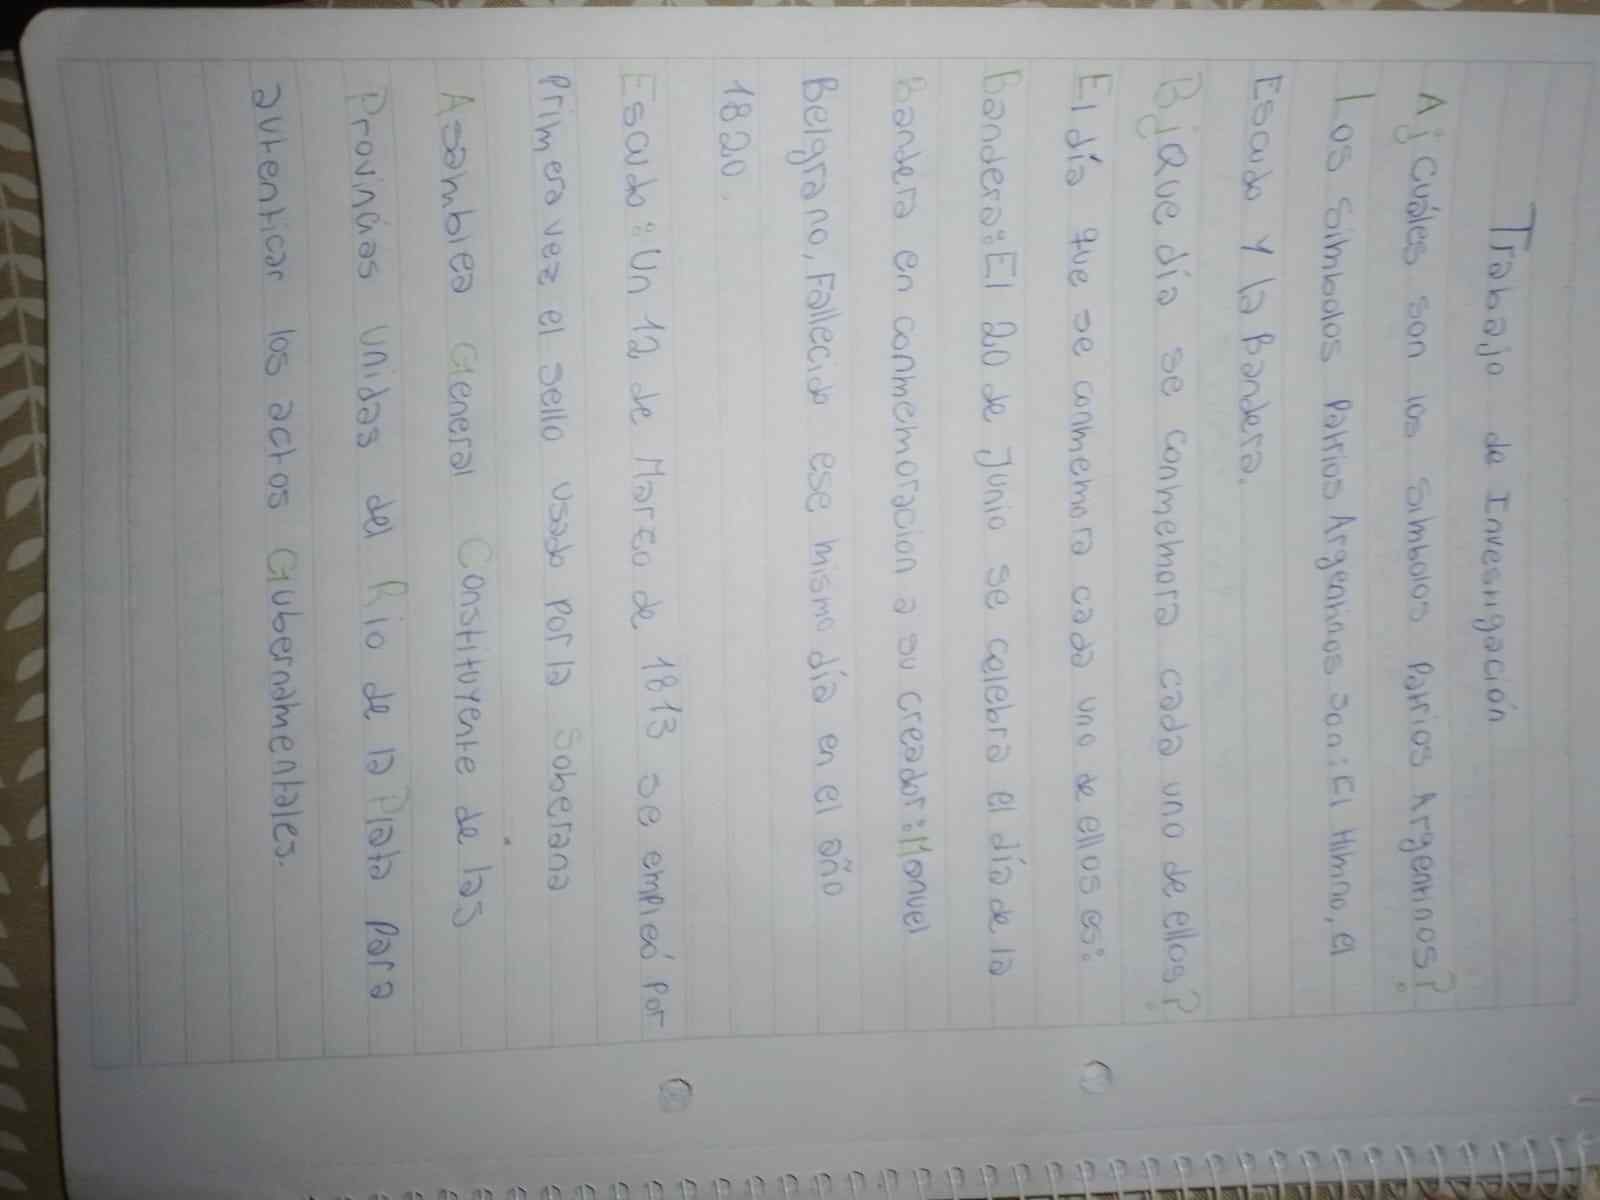 Trabajo de Investigación
A) Cuáles son los Simbolos Patrios Argentinos?
Los Simbolos Patrios Argentinos son: El Himno, el
Escudo Y la Bandera.
B) Que día se conmemora cada uno de ellos?
El día que se conmemora cada uno de ellos es:
Bandera: El 20 de Junio se celebra el día de la
Bandera en conmemoracion a su creador: Manuel
Belgrano, Fallecido ese mismo día en el año
1820.
Escudo: Un 12 de Marzo de 1813 se empleó por
Primera vez el sello usado por la Soberana
Asamblea General Constituyente de las
Provincias Unidas del Rio de la Plata para
autenticar los actos Gubernamentales.